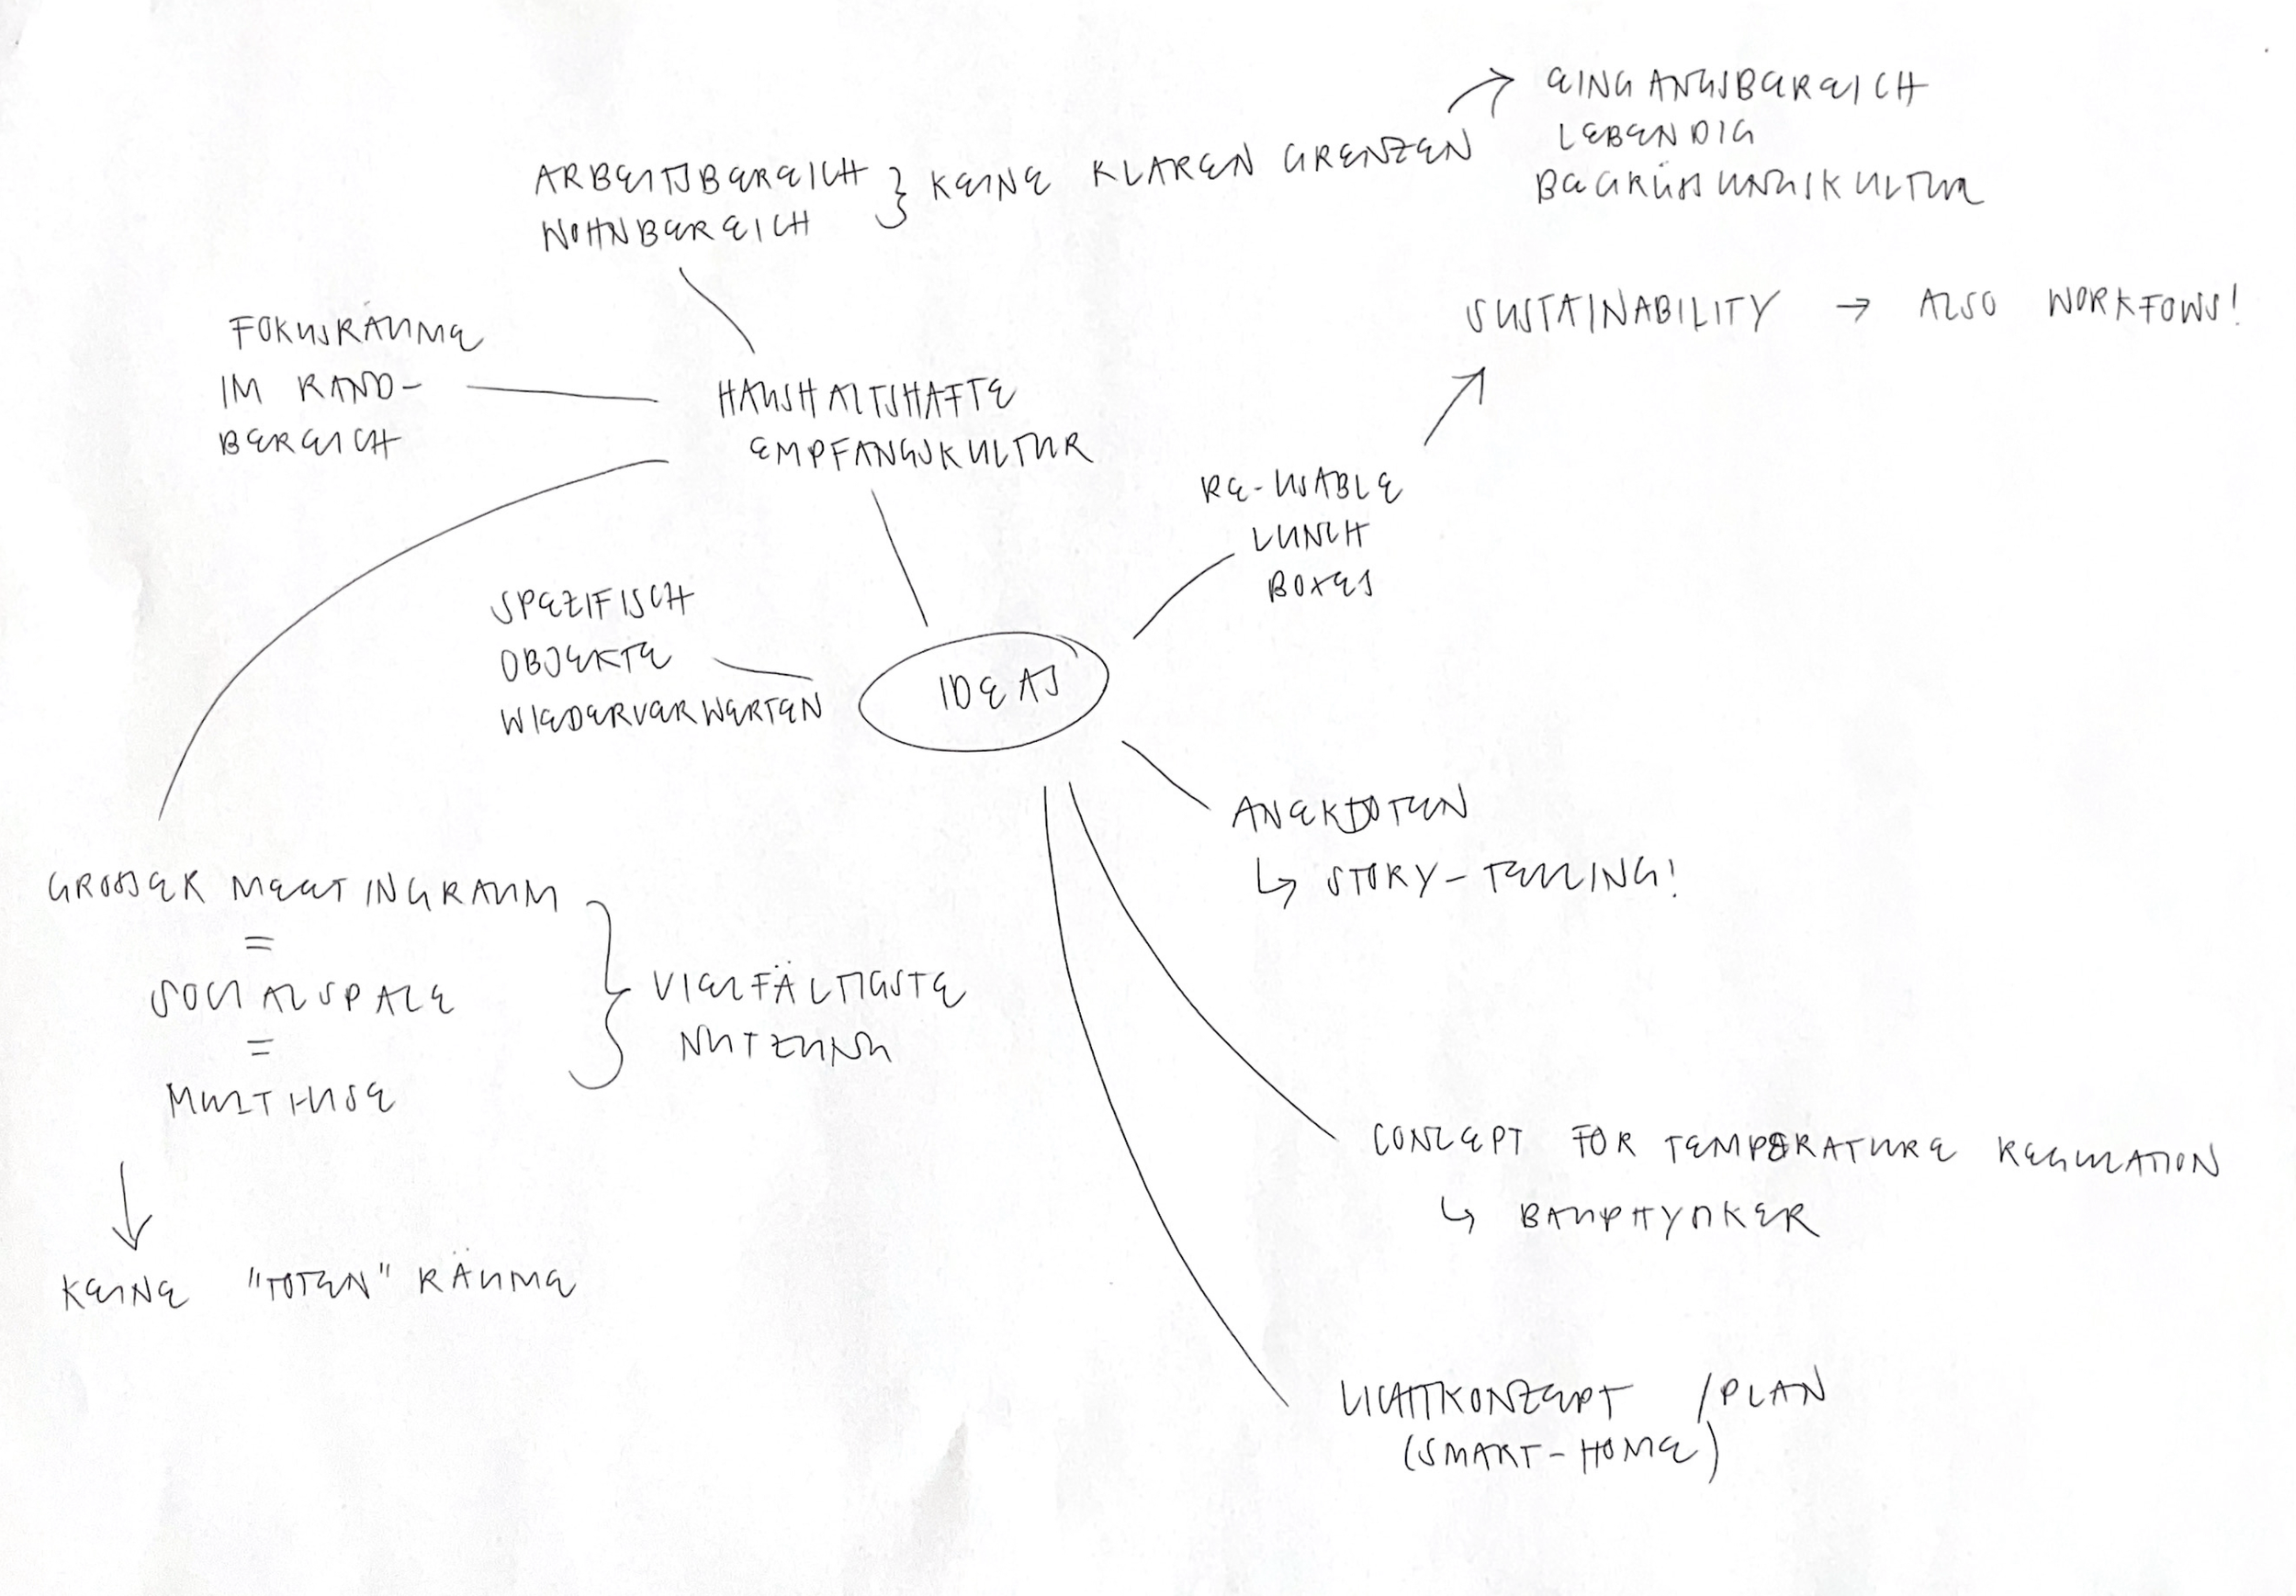 EINGANGSBEREICH
LEBENDIG
BEGRÜSSUNGSKULTUR
ARBEITSBEREICH } KEINE KLAREN GRENZEN
WOHNBEREICH
SUSTAINABILITY → ALSO WORKFOWS!
FOKUSRÄUME
IM RAND-
BEREICH
HAUSHALTSHAFTE
EMPFANGSKULTUR
RE-USABLE
LUNCH
BOXES
SPEZIFISCH
OBJEKTE
WIEDERVERWERTEN
IDEAS
ANEKDOTEN
↳ STORY-TELLING!
GROSSER MEETINGRAUM
=
SOCIALSPACE
=
MULTI-USE
VIELFÄLTIGSTE
NUTZUNG
KEINE "TOTEN" RÄUME
CONCEPT FOR TEMPERATURE REGULATION
↳ BAUPHYSIKER
LICHTKONZEPT /PLAN
(SMART-HOME)